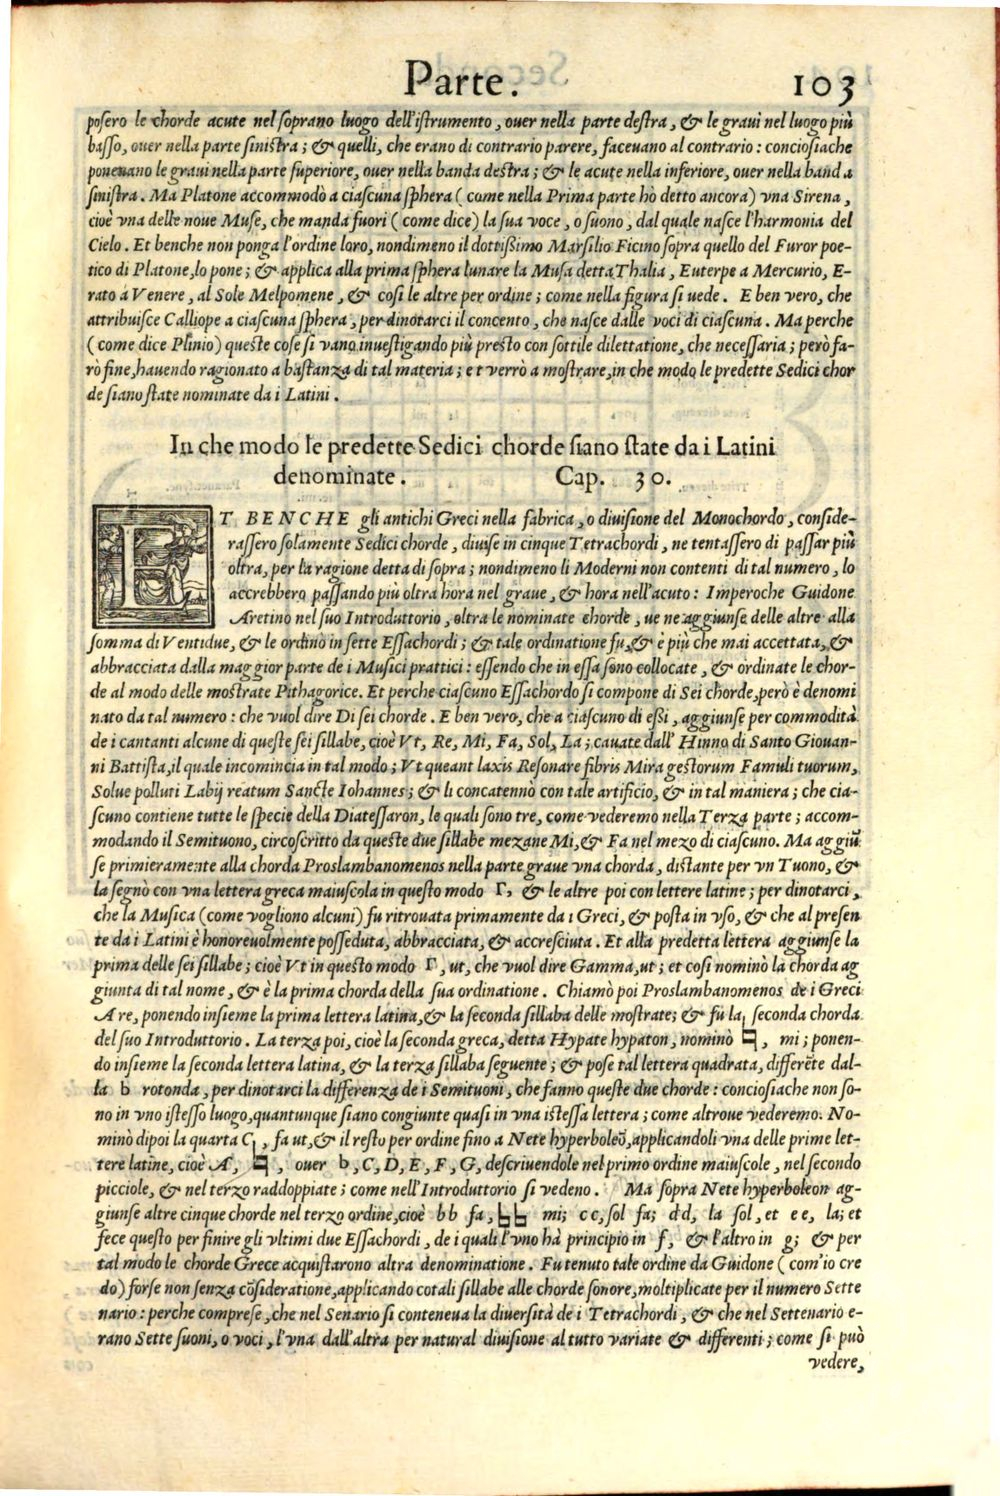 Parte. 103
posero le chorde acute nel soprano luogo dell'istrumento, ouer nella parte destra, & le graui nel luogo più
basso, ouer nella parte sinistra; & quelli, che erano di contrario parere, faceuano al contrario: conciosiache
poneuano le graui nella parte superiore, ouer nella banda destra; & le acute nella inferiore, ouer nella banda
sinistra. Ma Platone accommodò a ciascuna sphera (come nella Prima parte hò detto ancora) vna Sirena,
cioè vna delle noue Muse, che manda fuori (come dice) la sua voce, o suono, dal quale nasce l'harmonia del
Cielo. Et benche non ponga l'ordine loro, nondimeno il dottißimo Marsilio Ficino sopra quello del Furor poe-
tico di Platone, lo pone; & applica alla prima sphera lunare la Musa detta Thalia, Euterpe a Mercurio, E-
rato á Venere, al Sole Melpomene, & cosi le altre per ordine; come nella figura si uede. E ben vero, che
attribuisce Calliope a ciascuna sphera, per dinotarci il concento, che nasce dalle voci di ciascuna. Ma perche
(come dice Plinio) queste cose si vano inuestigando più presto con sottile dilettatione, che necessaria; però fa-
rò fine, hauendo ragionato a bastanza di tal materia; et verrò a mostrare, in che modo le predette Sedici chor
de siano state nominate da i Latini.
In che modo le predette Sedici chorde siano state da i Latini
denominate. Cap. 30.
ET BENCHE gli antichi Greci nella fabrica, o diuisione del Monochordo, conside-
rassero solamente Sedici chorde, diuise in cinque Tetrachordi, ne tentassero di passar più
oltra, per la ragione detta di sopra; nondimeno li Moderni non contenti di tal numero, lo
accrebbero passando più oltra hora nel graue, & hora nell'acuto: Imperoche Guidone
Aretino nel suo Introduttorio, oltra le nominate chorde, ue ne aggiunse delle altre alla
somma di Ventidue, & le ordinò in sette Essachordi; & tale ordinatione fu, & è più che mai accettata, &
abbracciata dalla maggior parte de i Musici prattici: essendo che in essa sono collocate, & ordinate le chor-
de al modo delle mostrate Pithagorice. Et perche ciascuno Essachordo si compone di Sei chorde, però è denomi
nato da tal numero: che vuol dire Di sei chorde. E ben vero, che a ciascuno di eßi, aggiunse per commodità
de i cantanti alcune di queste sei sillabe, cioè Vt, Re, Mi, Fa, Sol, La; cauate dall' Hinno di Santo Giouan-
ni Battista, il quale incomincia in tal modo; Vt queant laxis Resonare fibris Mira gestorum Famuli tuorum,
Solue polluti Labij reatum Sancte Iohannes; & li concatennò con tale artificio, & in tal maniera; che cia-
scuno contiene tutte le specie della Diatessaron, le quali sono tre, come vederemo nella Terza parte; accom-
modando il Semituono, circoscritto da queste due sillabe mezane Mi, & Fa nel mezo di ciascuno. Ma aggiũ
se primieramente alla chorda Proslambanomenos nella parte graue vna chorda, distante per vn Tuono, &
la segnò con vna lettera greca maiuscola in questo modo Γ, & le altre poi con lettere latine; per dinotarci,
che la Musica (come vogliono alcuni) fu ritrouata primamente da i Greci, & posta in vso, & che al presen
te da i Latini è honoreuolmente posseduta, abbracciata, & accresciuta. Et alla predetta lettera aggiunse la
prima delle sei sillabe; cioè Vt in questo modo Γ, ut, che vuol dire Gamma, ut; et cosi nominò la chorda ag
giunta di tal nome, & è la prima chorda della sua ordinatione. Chiamò poi Proslambanomenos de i Greci
A re, ponendo insieme la prima lettera latina, & la seconda sillaba delle mostrate; & fu la seconda chorda
del suo Introduttorio. La terza poi, cioè la seconda greca, detta Hypate hypaton, nominò ♮, mi; ponen-
do insieme la seconda lettera latina, & la terza sillaba seguente; & pose tal lettera quadrata, differẽte dal-
la b rotonda, per dinotarci la differenza de i Semituoni, che fanno queste due chorde: conciosiache non so-
no in vno istesso luogo, quantunque siano congiunte quasi in vna istessa lettera; come altroue vederemo. No-
minò dipoi la quarta C, fa ut, & il resto per ordine fino a Nete hyperboleõ, applicandoli vna delle prime let-
tere latine, cioè A, ♮, ouer b, C, D, E, F, G, descriuendole nel primo ordine maiuscole, nel secondo
picciole, & nel terzo raddoppiate; come nell'Introduttorio si vedeno. Ma sopra Nete hyperboleon ag-
giunse altre cinque chorde nel terzo ordine, cioè bb fa, ♮♮ mi; cc, sol fa; dd, la sol, et ee, la; et
fece questo per finire gli vltimi due Essachordi, de i quali l'vno hà principio in f, & l'altro in g; & per
tal modo le chorde Grece acquistarono altra denominatione. Fu tenuto tale ordine da Guidone (com'io cre
do) forse non senza cõsideratione, applicando cotali sillabe alle chorde sonore, moltiplicate per il numero Sette
nario: perche comprese, che nel Senario si conteneua la diuersità de i Tetrachordi, & che nel Settenario e-
rano Sette suoni, o voci, l'vna dall'altra per natural diuisione al tutto variate & differenti; come si può
vedere,